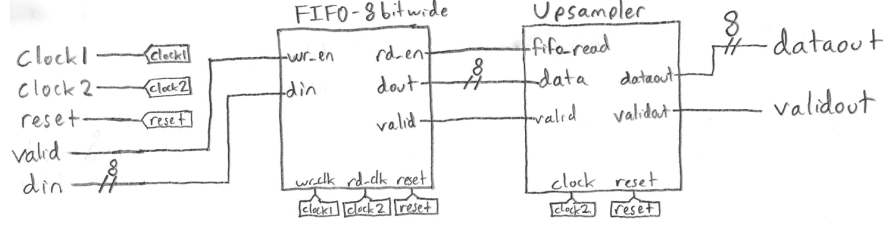 FIFO-8bitwide
Upsampler
Clock1 clock1
clock2 clock2
reset reset
valid
din 8
wr_en rd_en
din dout 8
valid
wr_clk rd_clk reset
clock1 clock2 reset
fifo_read
data dataout
valid validout
clock reset
clock2 reset
8
dataout
validout